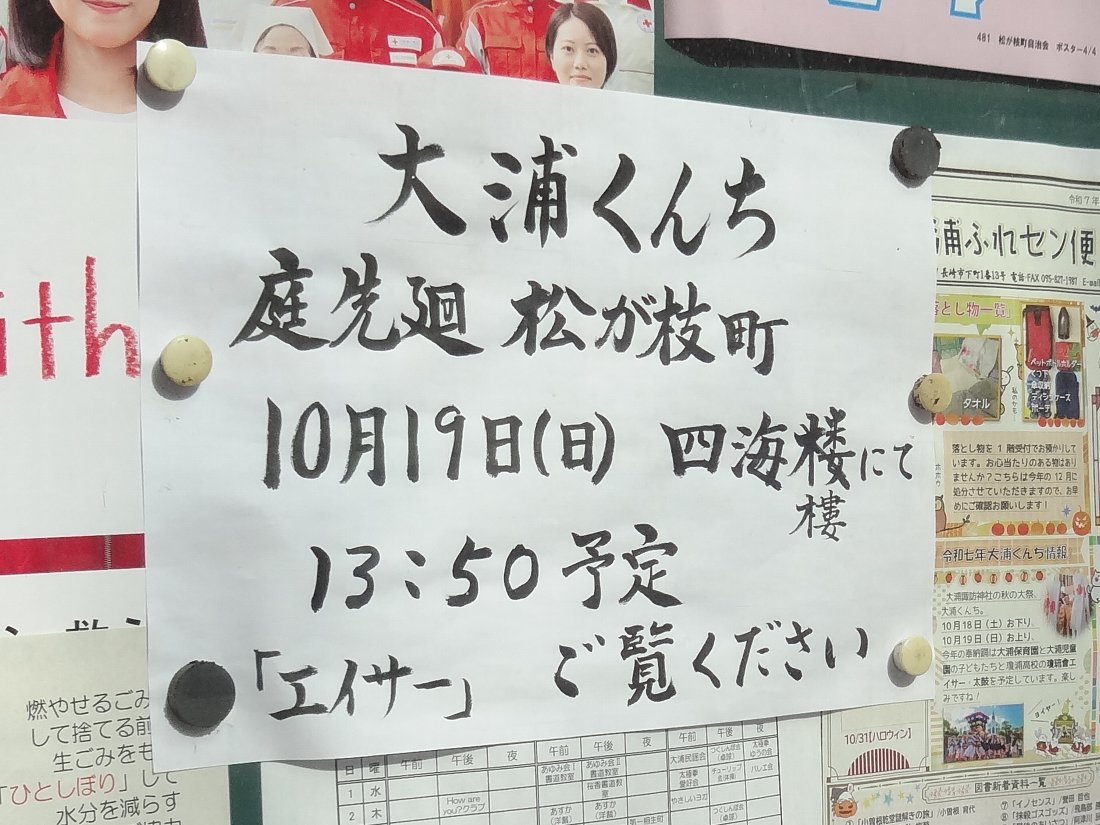 481 松が枝町自治会 ポスター4/4
大浦くんち
庭先廻 松が枝町
10月19日(日) 四海楼にて
樓
13:50予定
「エイサー」 ご覧ください
ith
燃やせるごみ
して捨てる前
生ごみをも
「ひとしぼり」して
水分を減らす
令和7年
浦ふれセン便
長崎市下町1番13号 電話・FAX 095-827-1987 E-mail
落とし物一覧」
タオル
ペットボトルホルダー
くつ下
傘収納
ディシグケース
ポーチ
落とし物を1階受付でお預かりして
います。お心当たりのある物はあり
ませんか？こちらは今年の12月に
処分させていただきますので、お早
めにご確認お願いします！
令和七年大浦くんち情報
大浦諏訪神社の秋の大祭、
大浦くんち。
10月18日(土)お下り、
10月19日(日)お上り、
今年の奉納踊は大浦保育園と大浦児童
園の子どもたちと瓊浦高校の琉球會エ
イサー・太鼓を予定しています。楽し
みですね！
10/31【ハロウィン】
図書新着資料一覧
日 曜 午前 午後 夜 午前 午後 夜 午前 午後 夜
1 水 あゆみ会Ⅰ 書道教室 あゆみ会Ⅱ 書道教室 大浦民謡会 つくしんぼ会 (卓球) 太極拳 ゆうの会
桜香書道教室 太極拳 愛好会 チューリップ バレエ会
2 木 How are you?クラブ あすか (洋裁) あすか (洋裁) やさしいヨガ つくしんぼ会 (卓球)
第一相生町
①「小曽根乾堂謎解きの旅」/小曽根 育代
⑦「イノセンス」/誉田 哲也